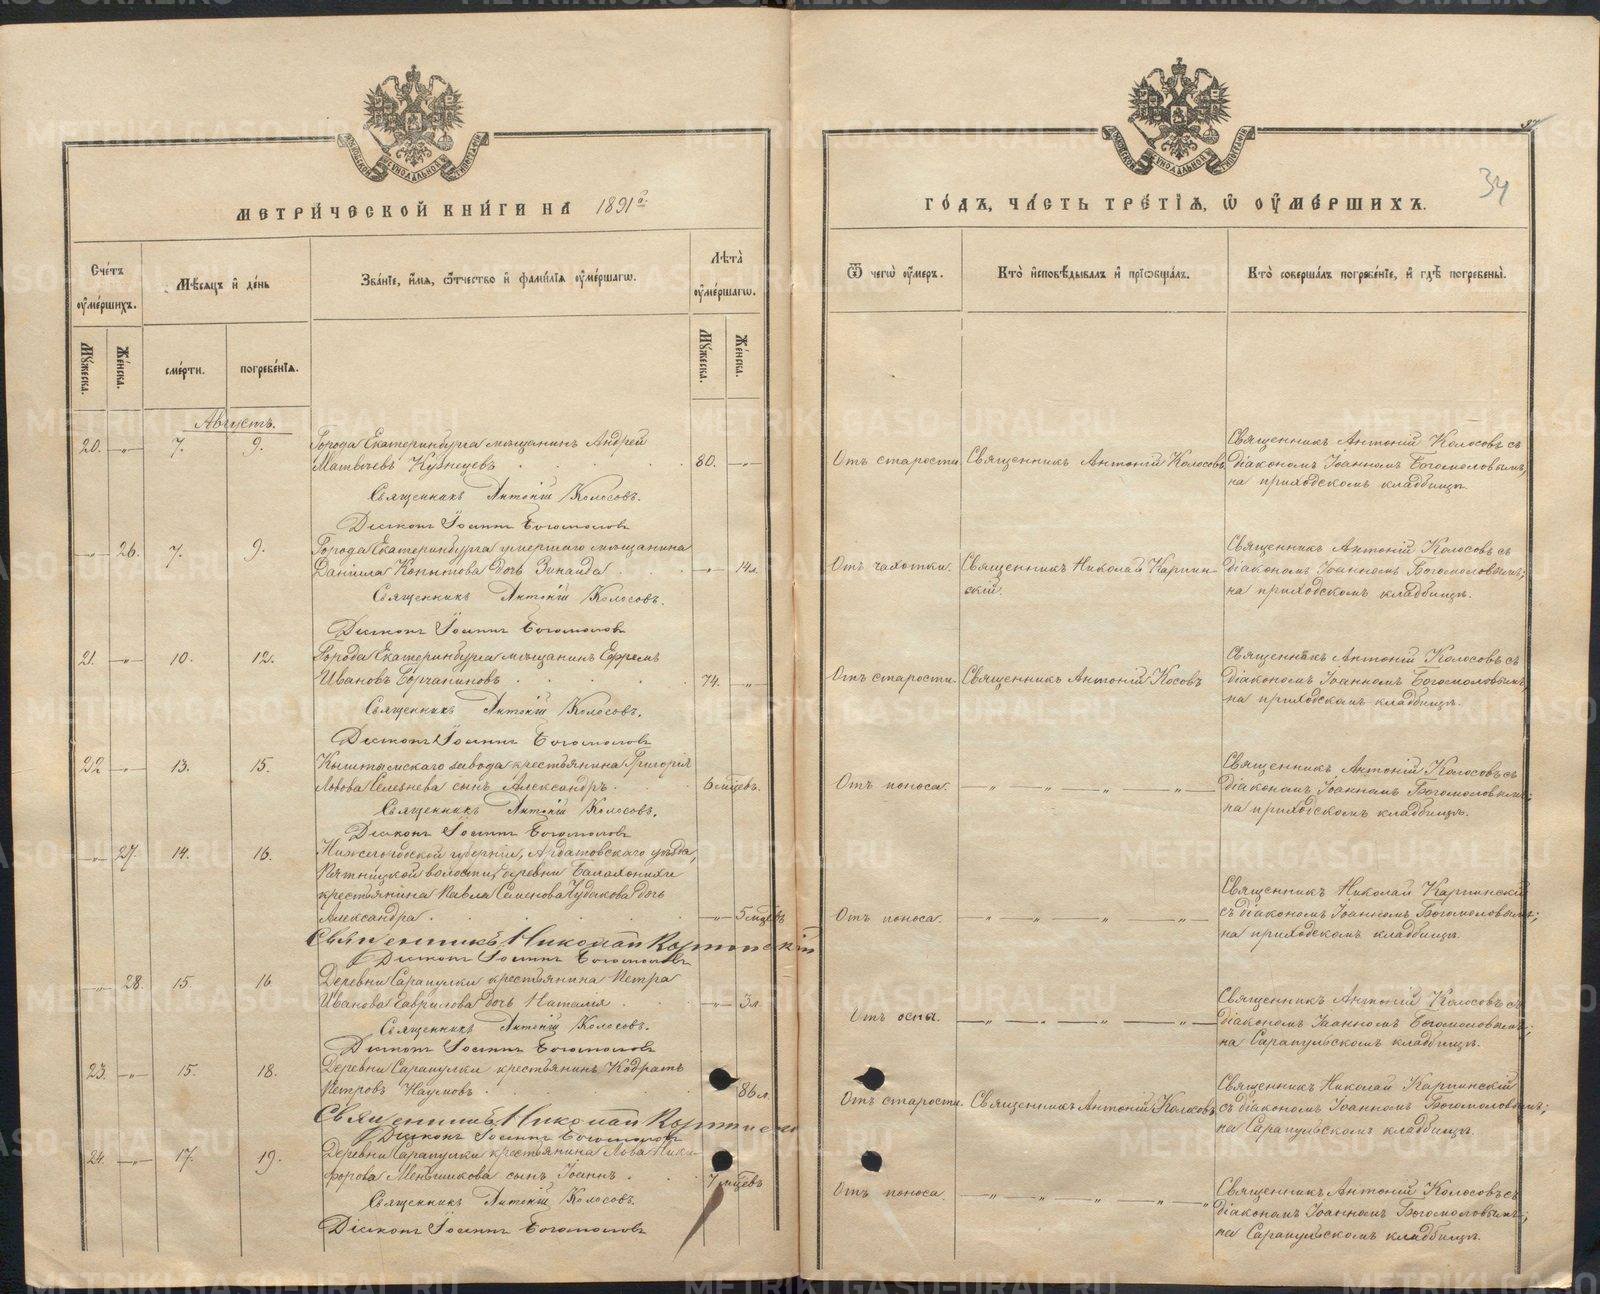 МЕТРИ́ЧЕСКОЙ КНИ́ГИ НА 1891й
Сче́тъ ѹ҆ме́ршихъ.
Мѣ́сяцъ и҆ де́нь
Зва́нїе, и҆́мя, ѻ҆́тчество и҆ фами́лїѧ ѹ҆ме́ршагѡ.
Лѣ́та ѹ҆ме́ршагѡ.
Мѹ́жеска.
Же́нска.
сме́рти.
погребе́нїѧ.
Мѹ́жеска.
Же́нска.
Августъ.
20. -„- 7. 9. Города Екатеринбурга мѣщанинъ Андрей
Матвѣевъ Кузнецовъ . . . . 80. -„-
Священникъ Антоній Колосовъ.
Діаконъ Іоаннъ Богомоловъ
-„- 26. 7. 9. Города Екатеринбурга умершаго мѣщанина
Даніила Копытова дочь Зинаида . . -„- 14 л.
Священникъ Антоній Колосовъ.
Діаконъ Іоаннъ Богомоловъ
21. -„- 10. 12. Города Екатеринбурга мѣщанинъ Ефремъ
Ивановъ Горчаниновъ . . . . 74. -„-
Священникъ Антоній Колосовъ.
Діаконъ Іоаннъ Богомоловъ
22 -„- 13. 15. Кыштымскаго завода крестьянина Григорія
Львова Селезнева сынъ Александръ . . 6 мцевъ.
Священникъ Антоній Колосовъ.
Діаконъ Іоаннъ Богомоловъ
-„- 27. 14. 16. Нижегородской губерніи, Ардатовскаго уѣзда,
Пятницкой волости, деревни Балахонихи
крестьянина Павла Семенова Чудакова дочь
Александра . . . . . -„- 5 мцевъ
Священникъ Николай Карпинскій
Діаконъ Іоаннъ Богомоловъ
-„- 28. 15. 16 Деревни Сарапулки крестьянина Петра
Иванова Гаврилова дочь Наталія . . -„- 3 л.
Священникъ Антоній Колосовъ.
Діаконъ Іоаннъ Богомоловъ
23. -„- 15. 18. Деревни Сарапулки крестьянинъ Кодратъ
Петровъ Наумовъ . . . . 86 л.
Священникъ Николай Карпинскій
Діаконъ Іоаннъ Богомоловъ
24. -„- 17. 19. Деревни Сарапулки крестьянина Льва Ники-
форова Меньшикова сынъ Іоаннъ . . 7 мцевъ
Священникъ Антоній Колосовъ.
Діаконъ Іоаннъ Богомоловъ
34
ГО́ДЪ, ЧА́СТЬ ТРЕ́ТІѦ, Ѡ҆ ѸМЕ́РШИХЪ.
Ѿ чегѡ̀ ѹ҆́меръ.
Кто̀ и҆сповѣ́дывалъ и҆ прїѡбща́лъ.
Кто̀ соверша́лъ погребе́нїе, и҆ гдѣ̀ погребены̀.
Отъ старости. Священникъ Антоній Колосовъ
Священникъ Антоній Колосовъ съ
діакономъ Іоанномъ Богомоловымъ,
на приходскомъ кладбищѣ.
Отъ чахотки. Священникъ Николай Карпин-
скій.
Священникъ Антоній Колосовъ съ
діакономъ Іоанномъ Богомоловымъ;
на приходскомъ кладбищѣ.
Отъ старости. Священникъ Антоній Косовъ
Священникъ Антоній Колосовъ съ
діакономъ Іоанномъ Богомоловымъ,
на приходскомъ кладбищѣ.
Отъ поноса. -„- -„- -„- -„-
Священникъ Антоній Колосовъ съ
діакономъ Іоанномъ Богомоловымъ;
на приходскомъ кладбищѣ.
Отъ поноса. -„- -„- -„- -„-
Священникъ Николай Карпинскій
съ діакономъ Іоанномъ Богомоловымъ;
на приходскомъ кладбищѣ.
Отъ оспы. -„- -„- -„- -„-
Священникъ Антоній Колосовъ съ
діакономъ Іоанномъ Богомоловымъ;
на Сарапульскомъ кладбищѣ.
Отъ старости. Священникъ Антоній Колосовъ
Священникъ Николай Карпинскій
съ діакономъ Іоанномъ Богомоловымъ;
на Сарапульскомъ кладбищѣ.
Отъ поноса. -„- -„- -„- -„-
Священникъ Антоній Колосовъ съ
діакономъ Іоанномъ Богомоловымъ;
на Сарапульскомъ кладбищѣ.
METRIKI.GASO-URAL.RU